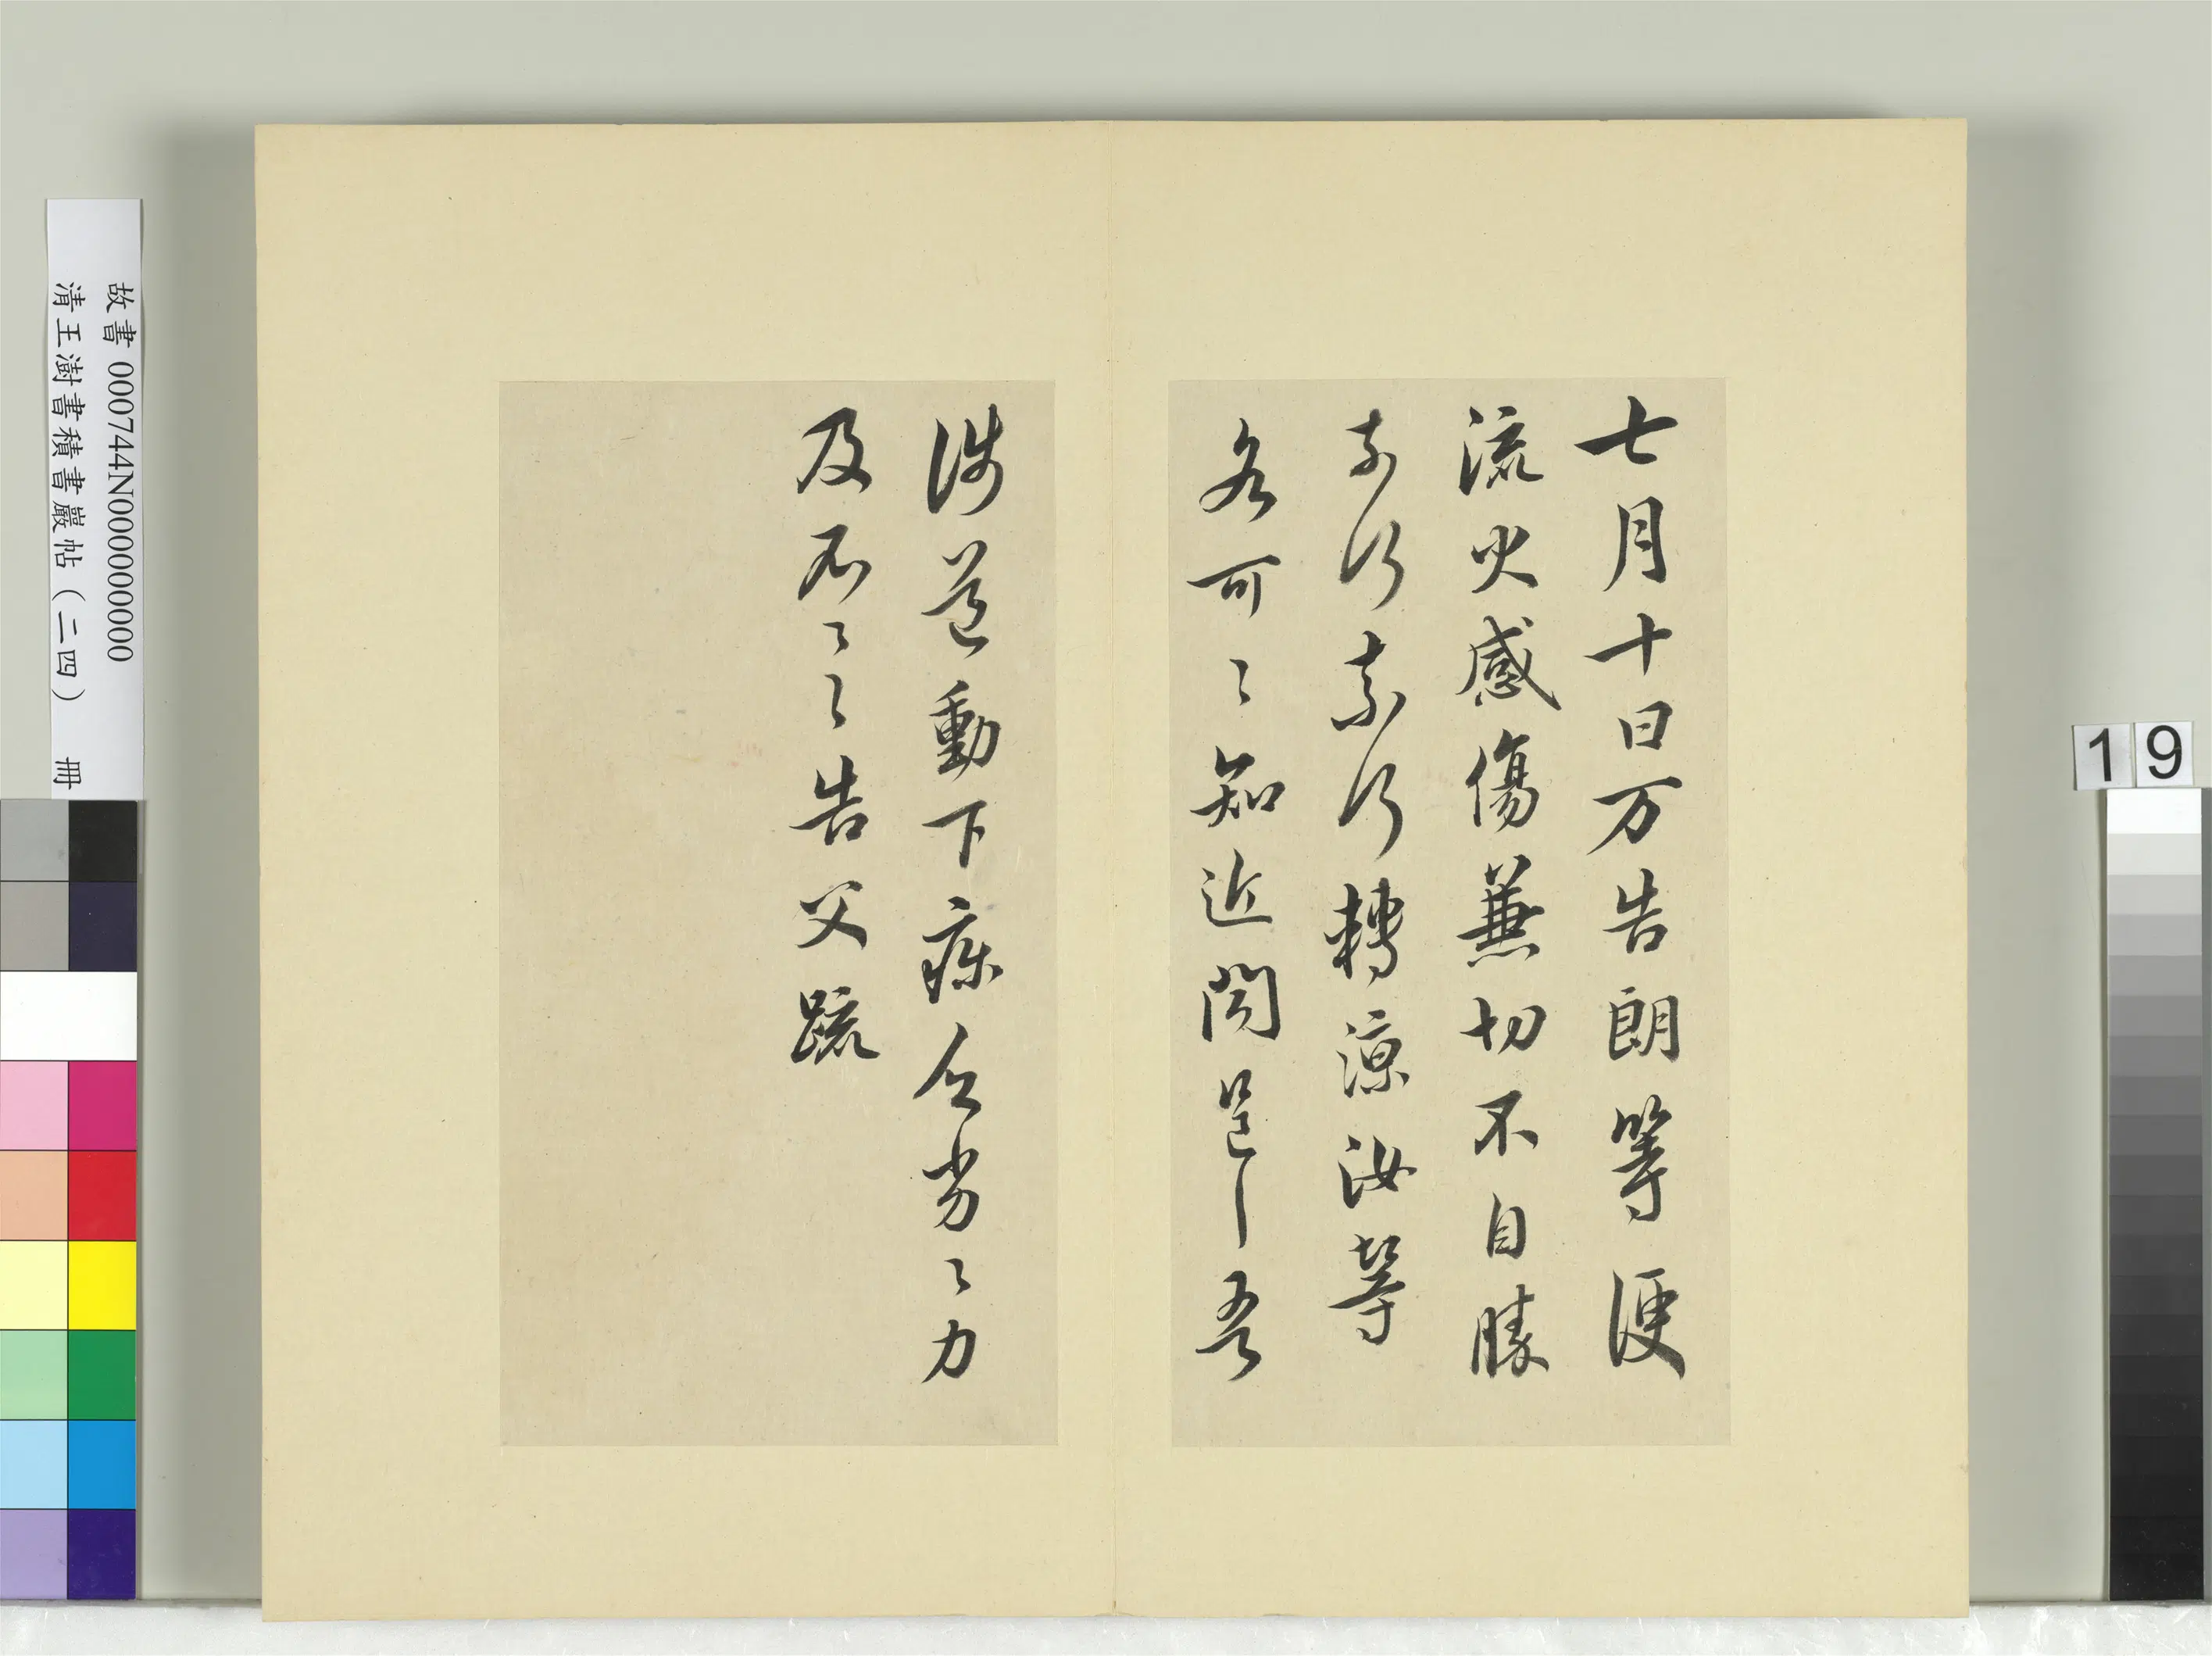 七月十日万告朗等便
流火感傷兼切不自勝
奈何奈何轉涼汝等
各可〻知近問邑〻吾
涉道動下痳乏劣〻力
及不一〻告父疏
故書 000744N000000000
清王澍書積書巖帖（二四） 冊
19